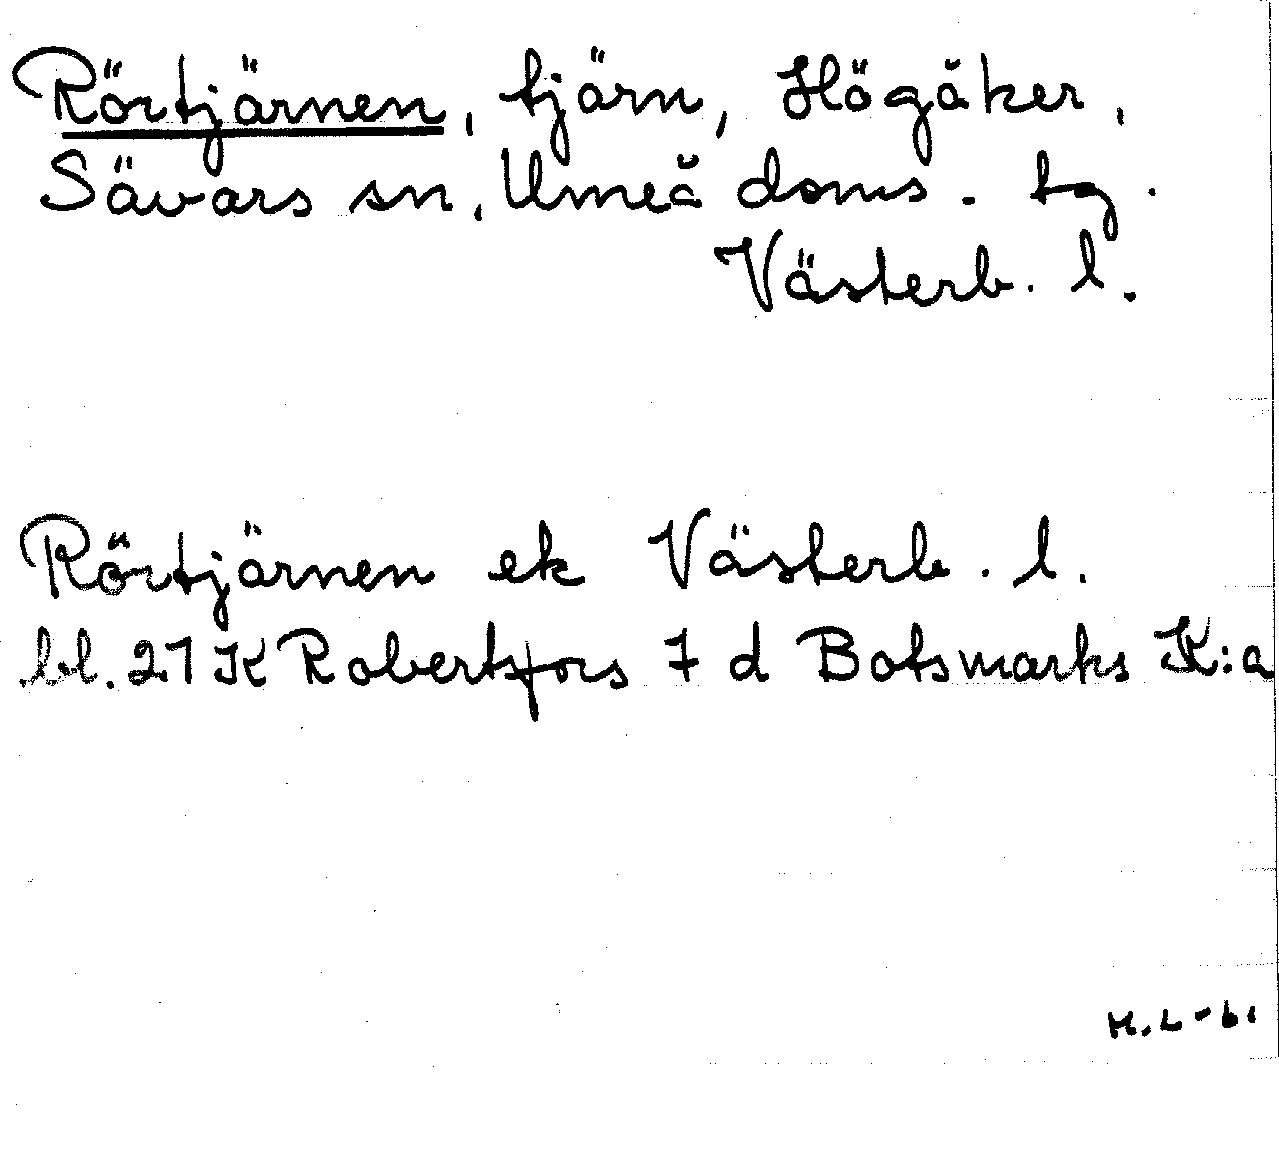 Rörtjärnen, tjärn, Högåker,
Sävars sn, Umeå doms. tg.
Västerb. l.
Rörtjärnen ek Västerb. l.
bl. 21 K Robertsfors 7 d Botsmarks K:a
H.L-61